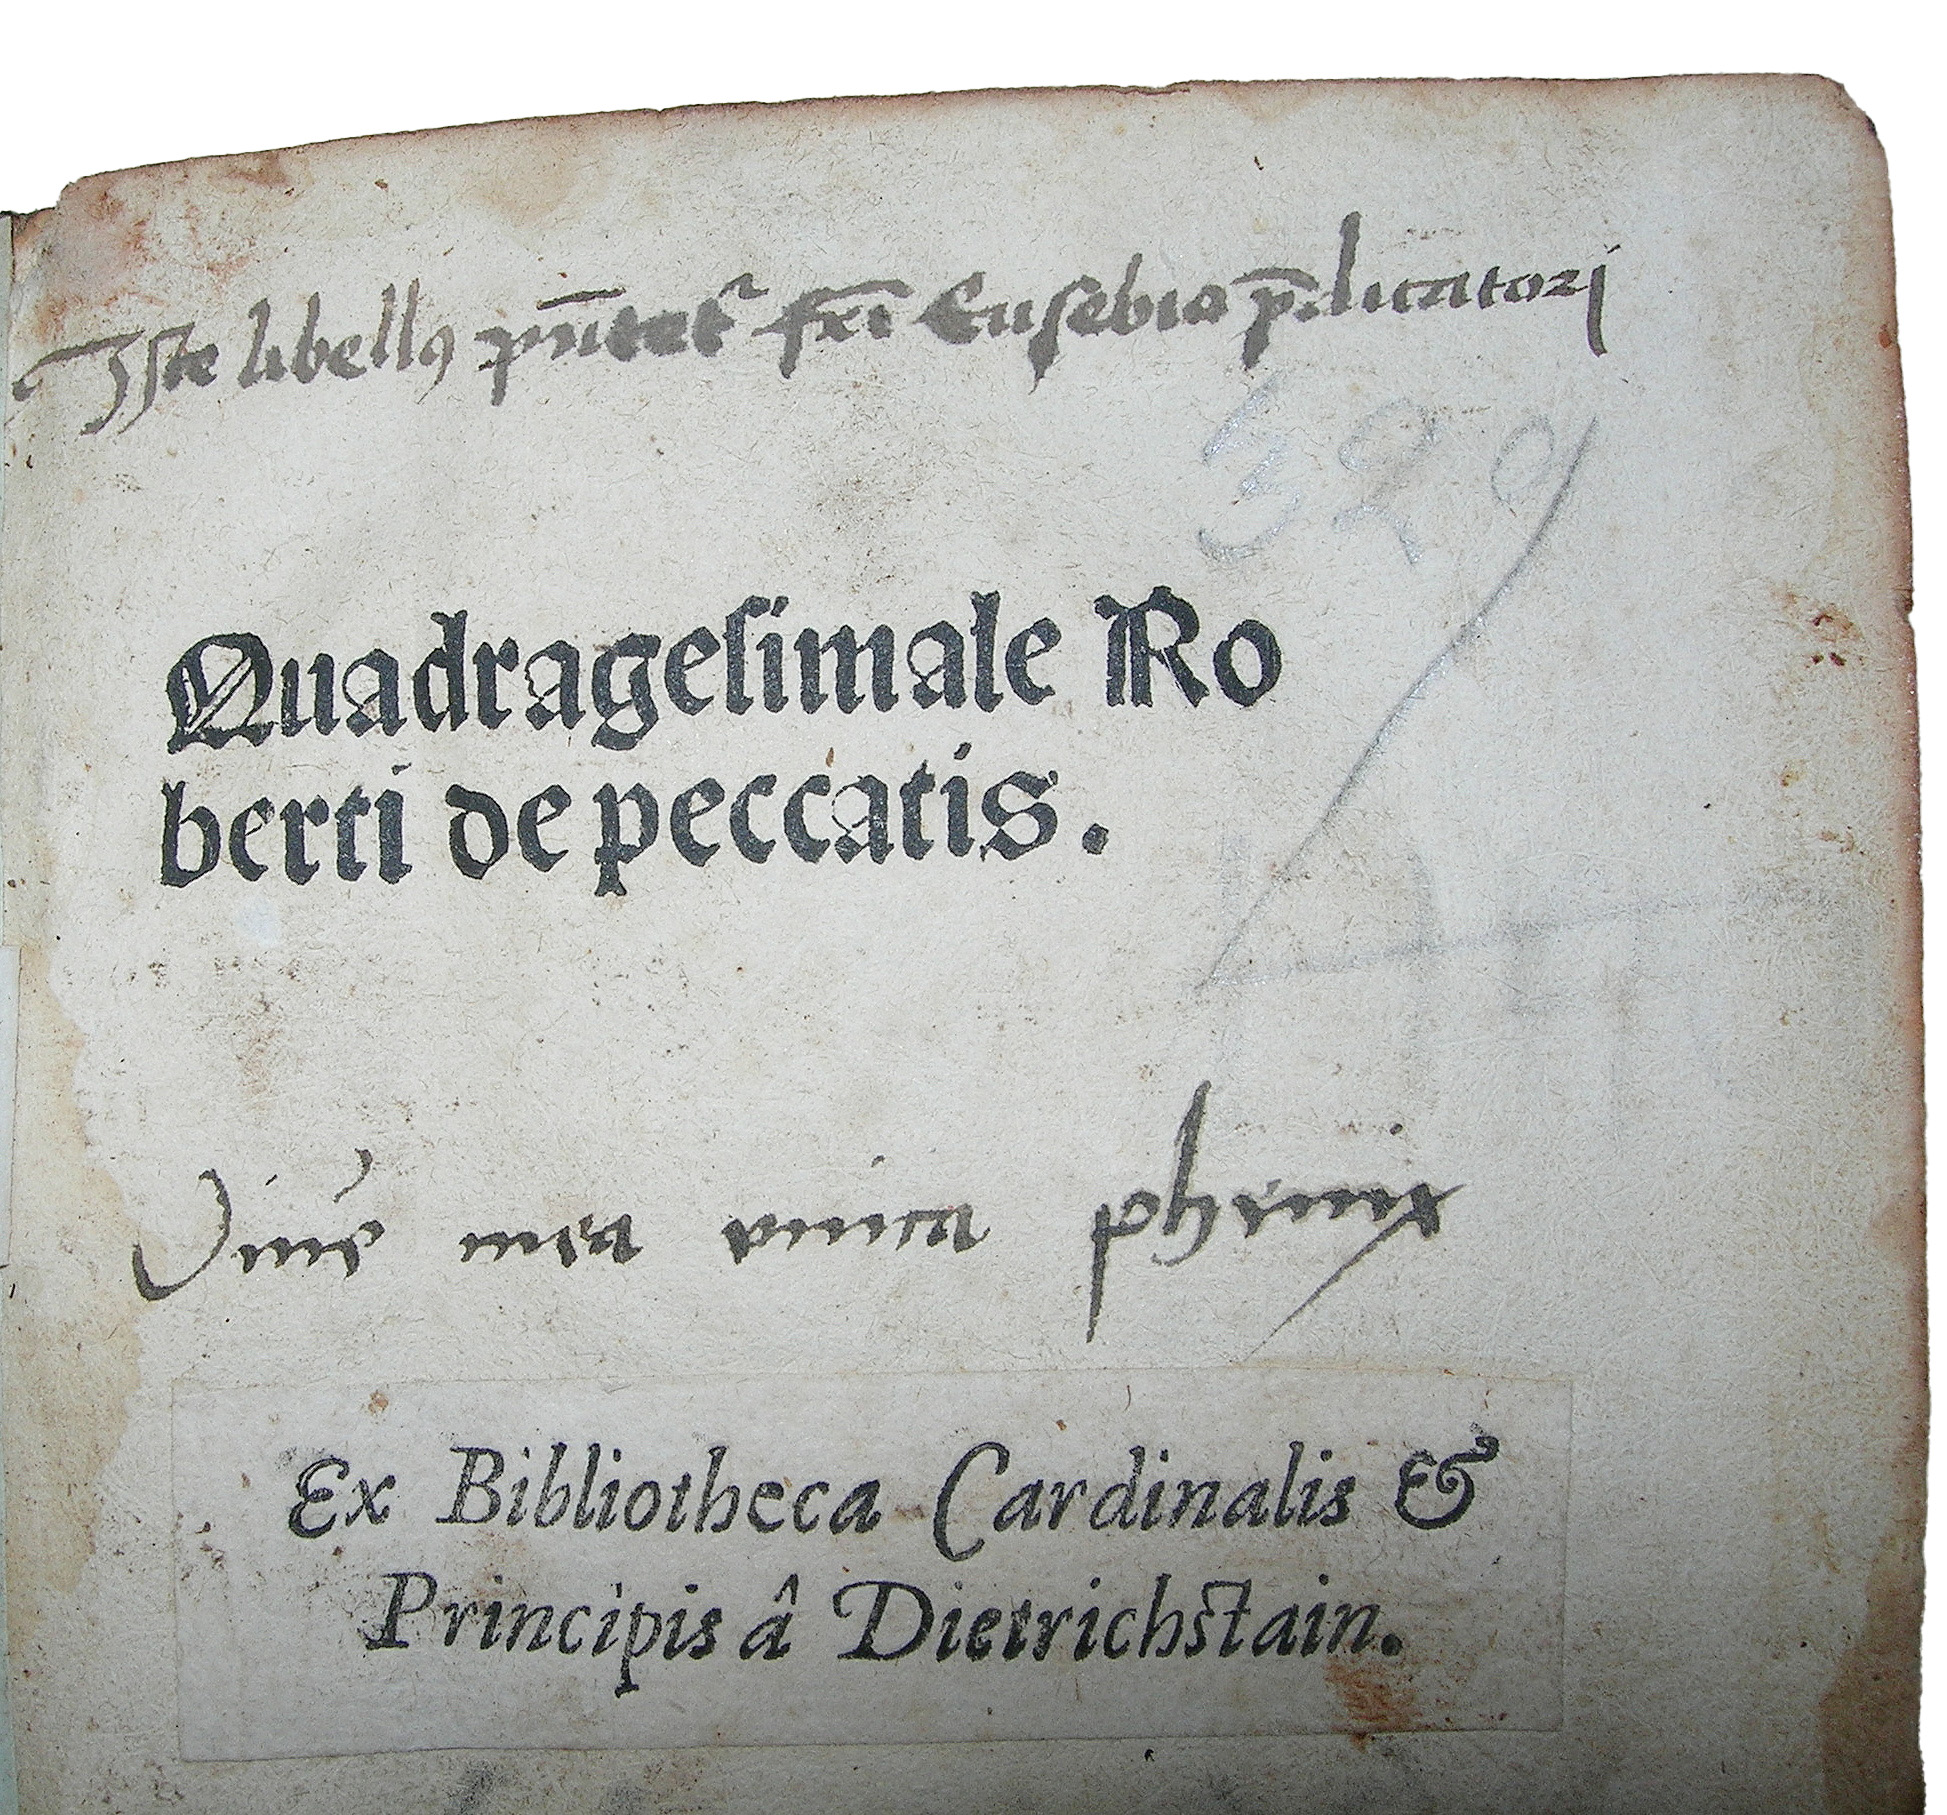 Iste libellꝰ pn̄tetᷣ fr̄i Eusebio p̄dicatori
329
Quadragesimale Ro
berti de peccatis.
mea unica phenix
Ex Bibliotheca Cardinalis &
Principis â Dietrichstain.